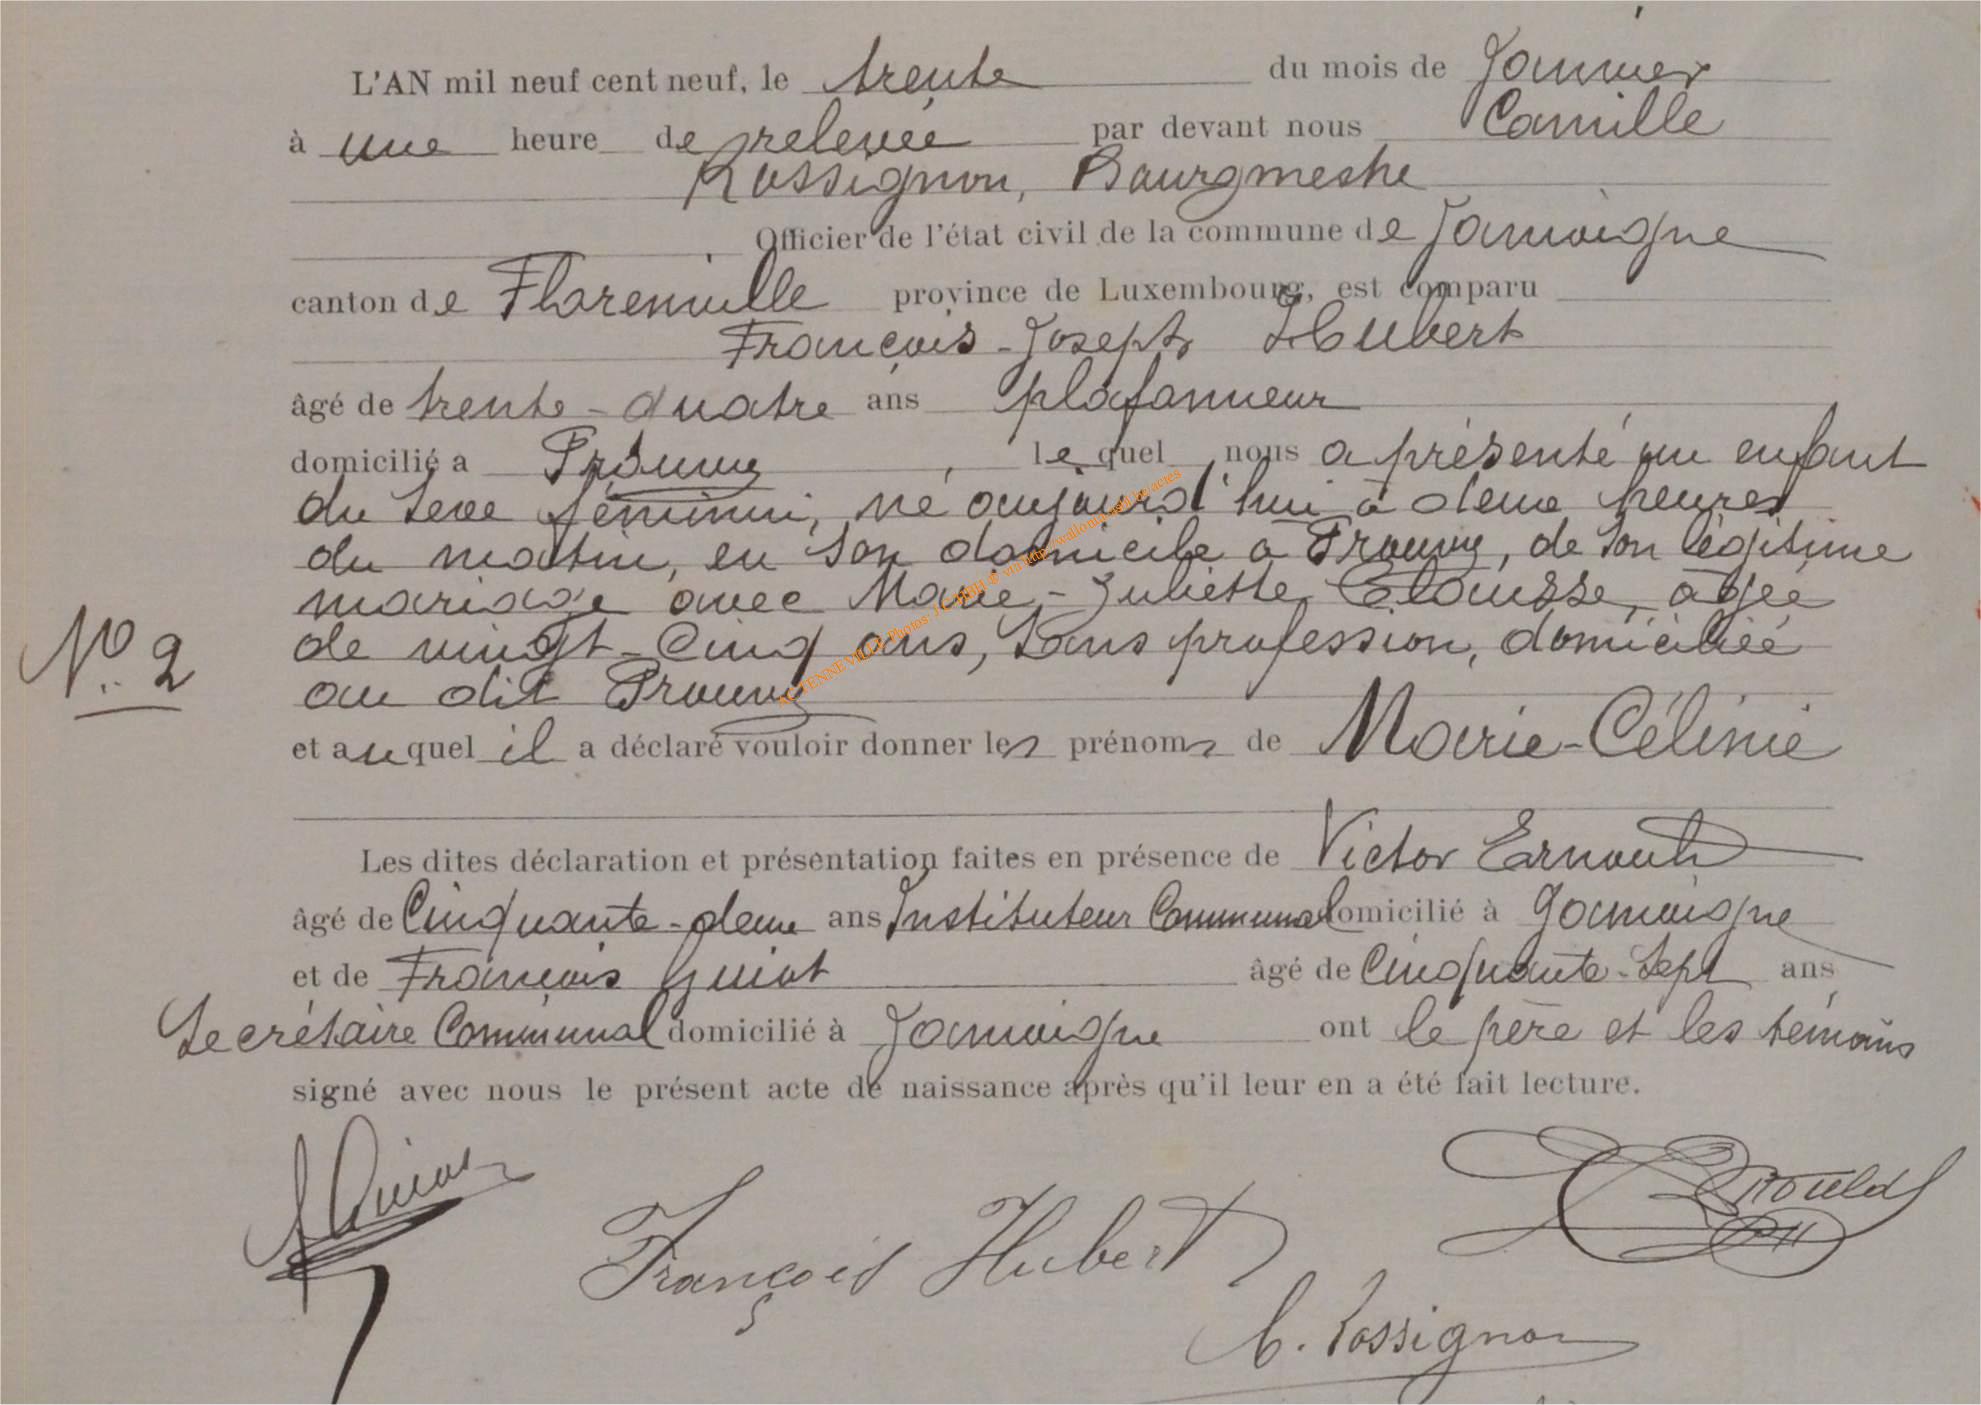 L'AN mil neuf cent neuf, le trente du mois de Janvier
à une heure de relevée par devant nous Camille
Rossignon, Bourgmestre
Officier de l'état civil de la commune de Jamoigne
canton de Florenville province de Luxembourg, est comparu
François-Joseph Hubert
âgé de trente-quatre ans plafonneur
domicilié a Prouvy, lequel nous a présenté un enfant
du sexe féminin, né aujourd'hui à deux heures
du matin, en son domicile a Prouvy, de son légitime
mariage avec Marie-Juliette Clausse, agée
N° 2
de vingt-cinq ans, sans profession, domiciliée
au dit Prouvy
et auquel il a déclaré vouloir donner les prénoms de Marie-Célinie
Les dites déclaration et présentation faites en présence de Victor Ernould
âgé de Cinquante-deux ans Instituteur Communal domicilié à Jamoigne
et de François Guiot âgé de Cinquante-Sept ans
Secrétaire Communal domicilié à Jamoigne ont le père et les témoins
signé avec nous le présent acte de naissance après qu'il leur en a été fait lecture.
Guiot
François Hubert
Ernould
C. Rossignon